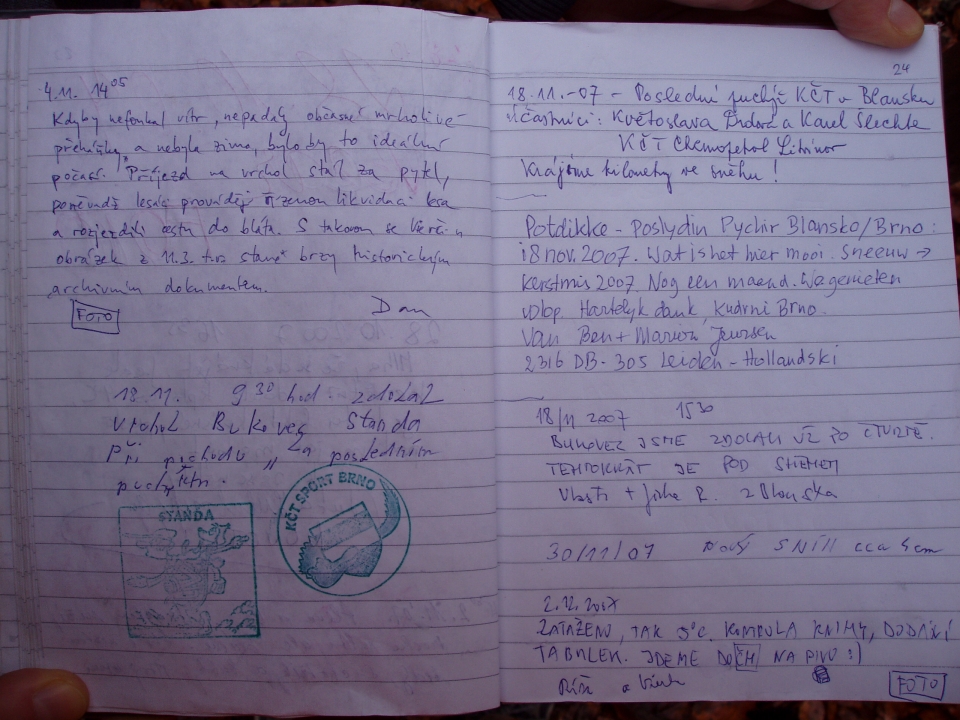 4.11. 14 05
Kdyby nefoukal vítr, nepadaly občasné mrholivé
přeháňky a nebyla zima, bylo by to ideální
počasí. Příjezd na vrchol stál za pykl,
poněvadž lesáci provádějí řízenou likvidaci lesa
a rozjezdili cestu do bláta. S takovou se
obrázek z 11.3. t.r. stane brzy historickým
archivním dokumentem.
FOTO
Dan
18.11. 9 30 hod. zdolal
vrchol Bukovec Standa
Při pochodu „Za posledním
puchýřem.
STANDA
KČT SPORT BRNO
24
18.11.-07 - Poslední puchýř KČT v Blansku
účastníci: Květoslava a Karel Šlechta
KČT Chemopetrol Litvínov
Krájíme kilometry ve sněhu!
Potdikke - Poslydin Pychir Blansko/Brno:
18 nov. 2007. Wat is het hier mooi. Sneeuw →
kerstmis 2007. Nog een maand. We genieten
volop. Hartelyk dank, Kudrni Brno.
Van Ben + Marion Jeursen
2316 DB - 305 Leiden - Hollandski
18/11 2007 15 30
BUKOVEC JSME ZDOLALI UŽ PO ČTVRTÉ.
TENTOKRÁT JE POD SNĚHEM
Vlasti + Jirka R. z Blanska
30/11/07 NOVÝ SNÍH cca 4 cm
2.12.2007
ZATAŽENO, TAK 5°C. KONTROLA KNIHY, DODÁNÍ
TABULEK. JDEME DO ČH NA PIVO :)
FOTO